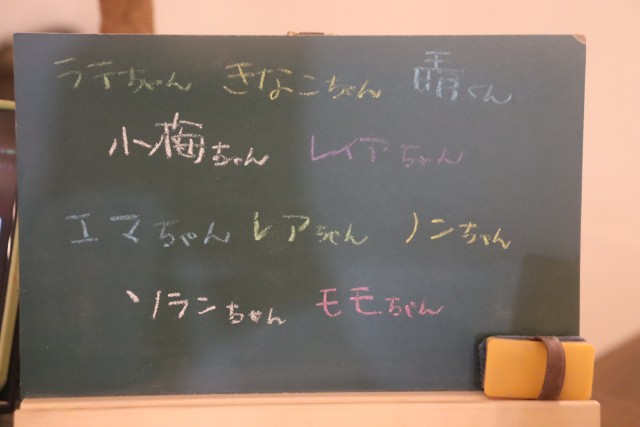 ラテちゃん きなこちゃん 晴くん
小梅ちゃん レイアちゃん
エマちゃん レアちゃん ノンちゃん
ソランちゃん モモちゃん